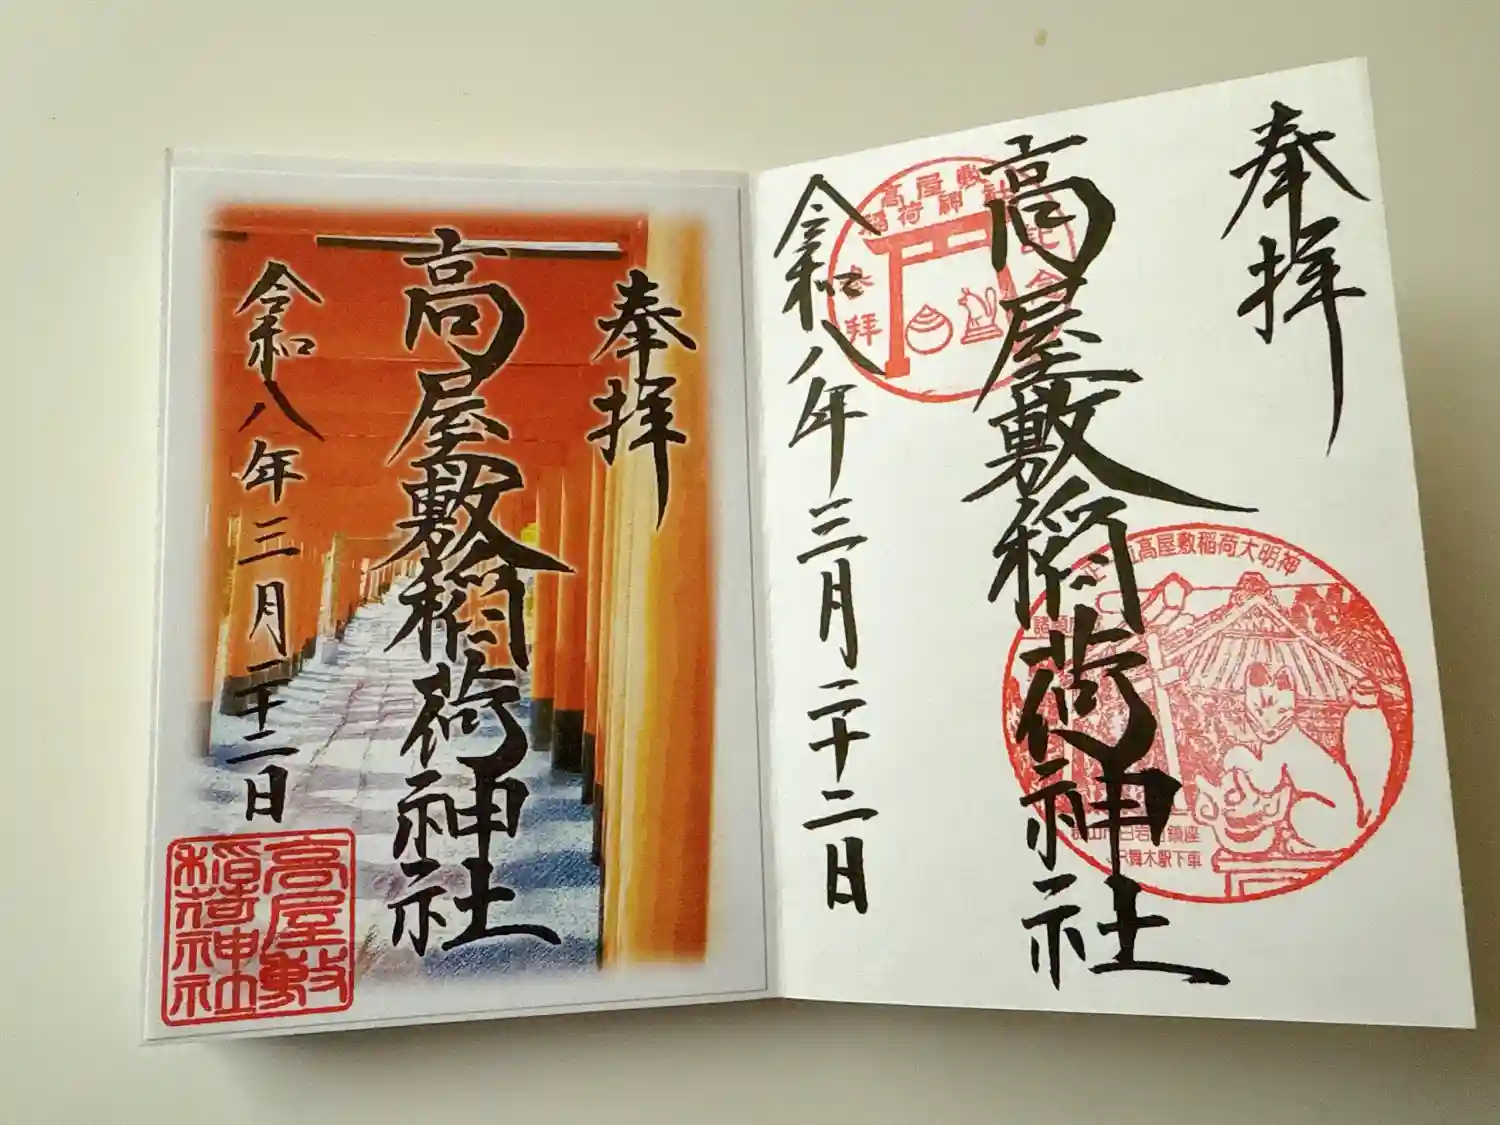 奉拝
高屋敷稲荷神社
令和八年三月二十二日
高屋敷
稲荷神社
奉拝
高屋敷稲荷神社
令和八年三月二十二日
高屋敷
稲荷神社
参拝
記念
高屋敷稲荷大明神
鎮座
JR舞木駅下車